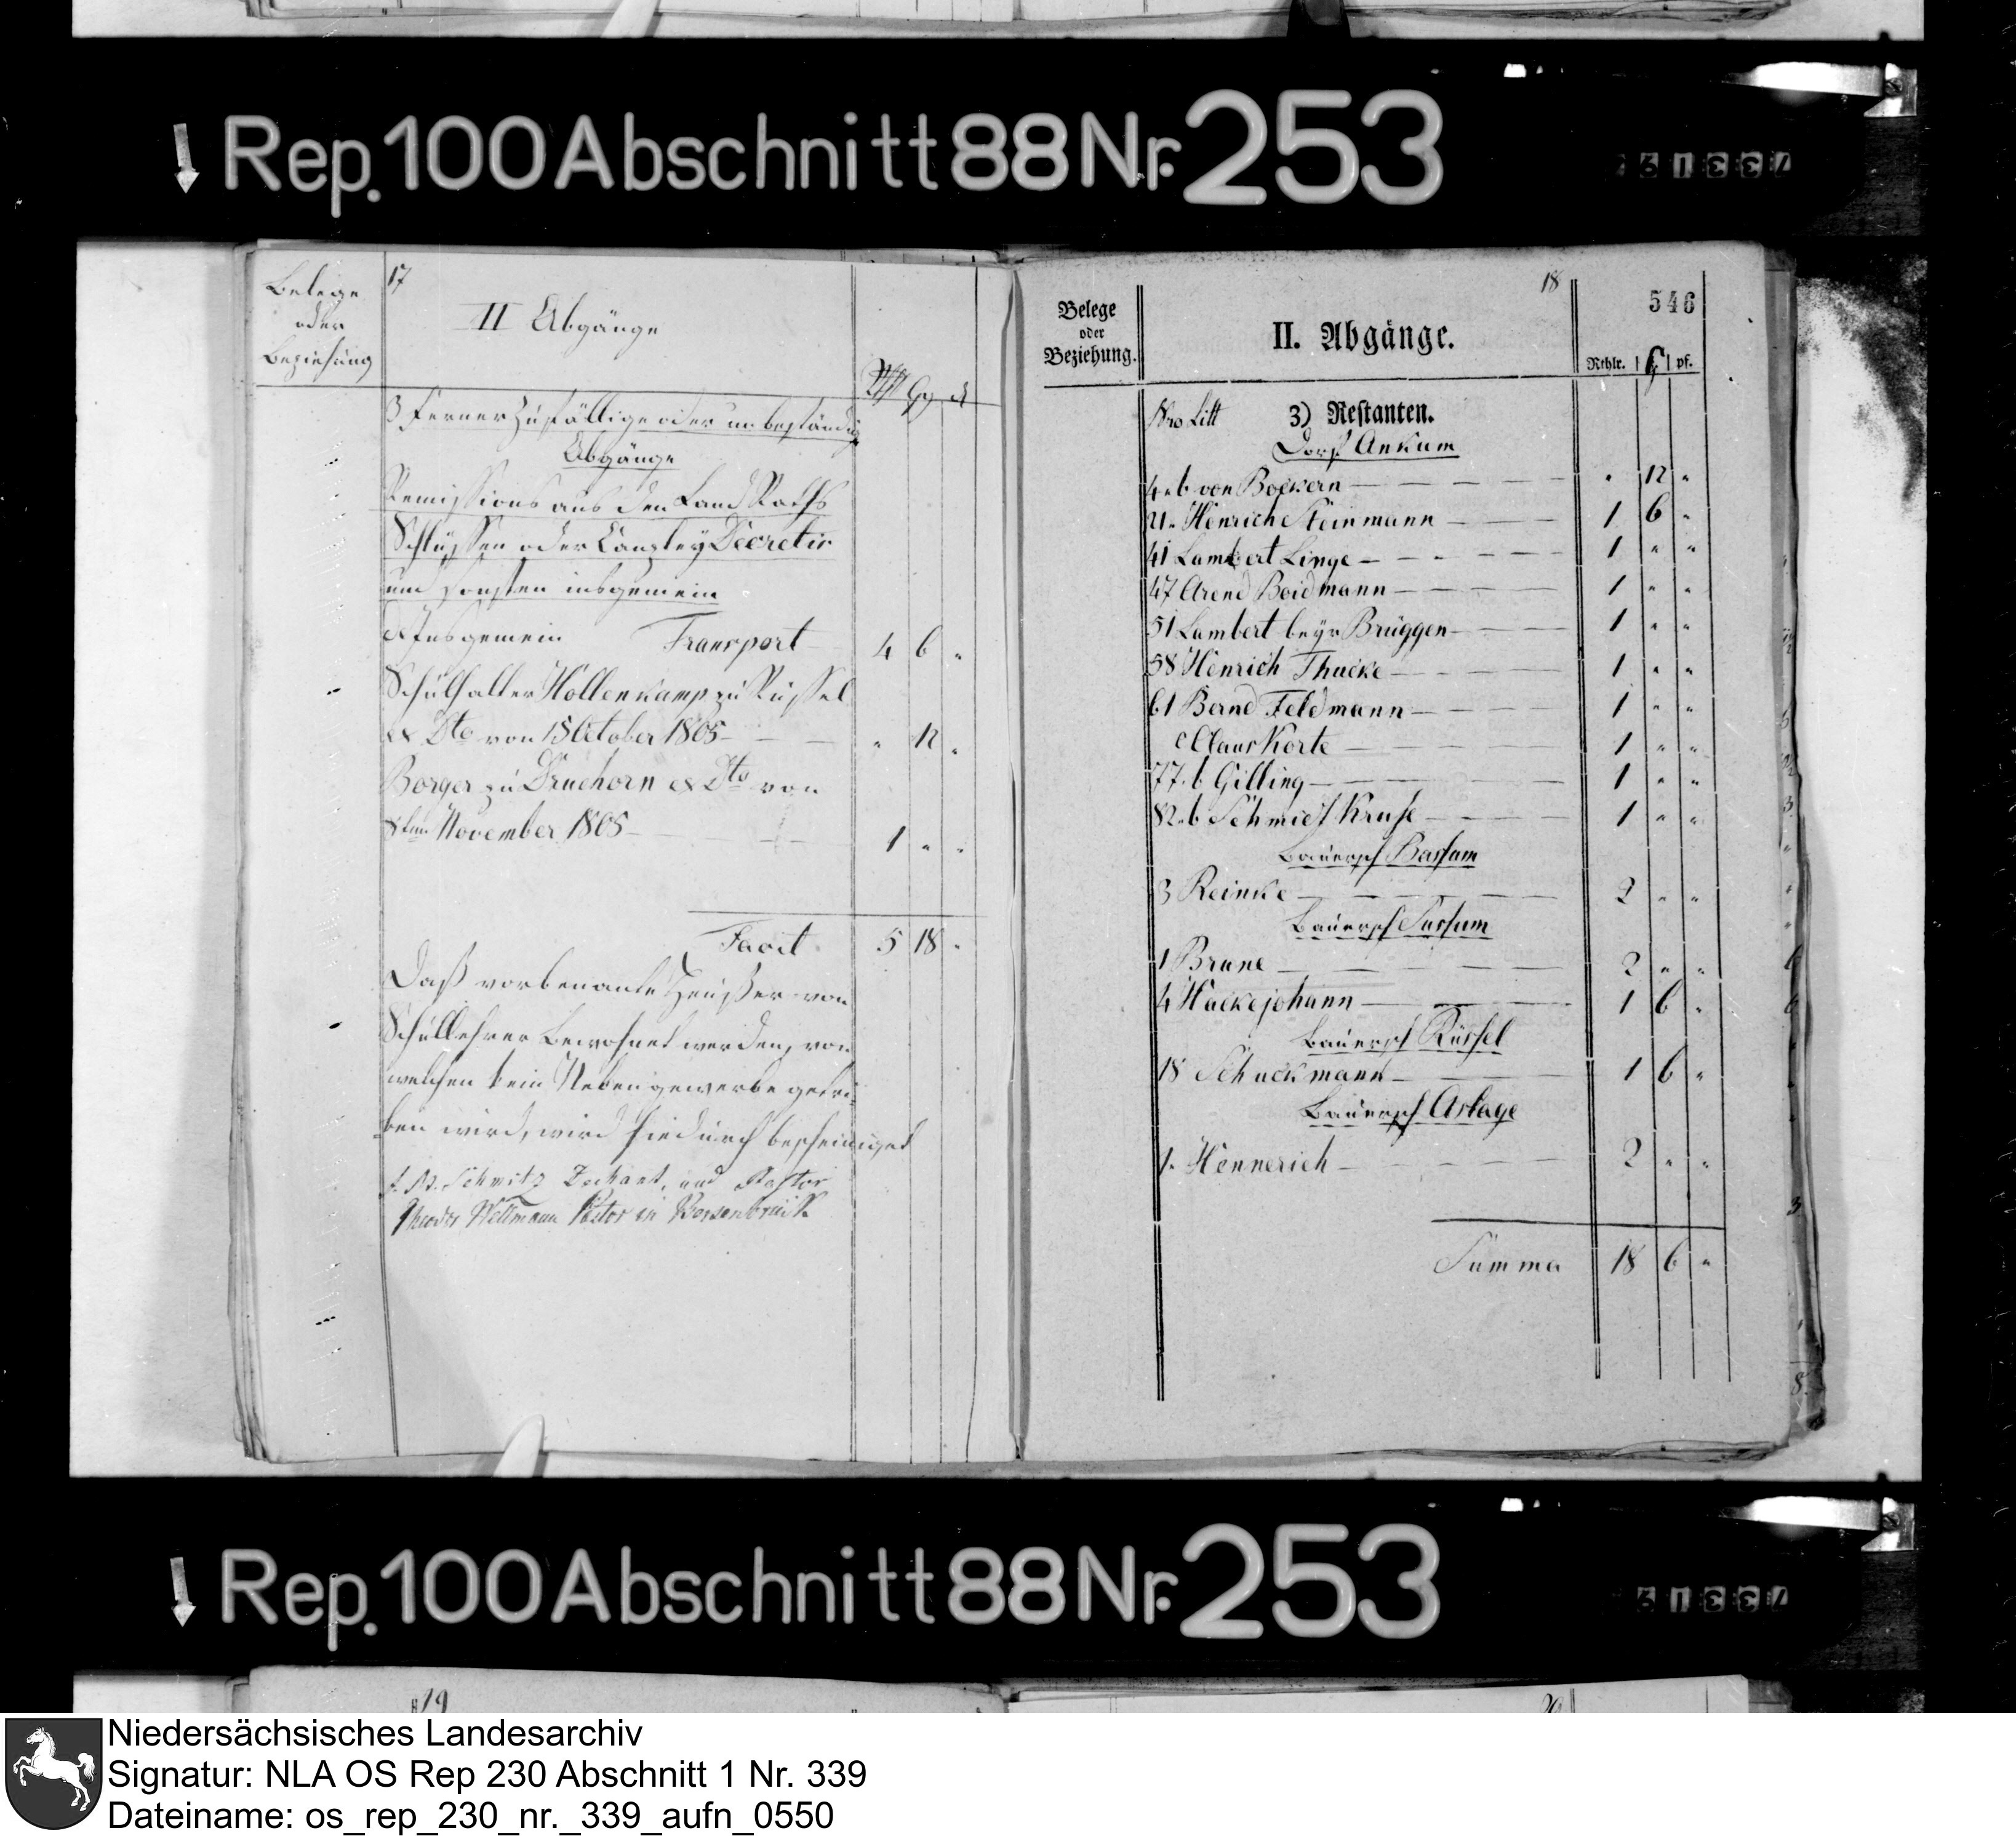 Rep. 100 Abschnitt 88 Nr. 253
Belege
oder
Beziehung
17
II Abgänge
3 Ferner zufällige oder unbeständig
Abgänge
Remissions aus den Land Raths
Schlüssen oder Canzley Decretis
und sonsten insgemein
Insgemein Transport 4 6 "
Schulhalter Hollenkamp zu Rüssel
ex Dto von 15 October 1805 " 12 "
Borger zu Druchorn ex Dto von
8ten November 1805 1 " "
Facit 5 18 "
Daß vorbenante Heußer von
Schullehrer bewohnet werden, von
welchen kein Nebengewerbe getrie-
ben wird, wird hiedurch bescheiniget
Schmitz Dechant, und Pastor
Theodor Wellmann Pastor in Bersenbrück
18
546
Belege
oder
Beziehung.
II. Abgänge.
Rthlr. ß pf.
Nro Litt 3) Restanten.
Dorf Ankum
4 " b von Bockern " 12 "
21 " Henrich Steinmann 1 6 "
41 Lambert Linge 1 " "
47 Arend Boidmann 1 " "
51 Lambert beyr Brüggen 1 " "
58 Henrich Thucke 1 " "
61 Bernd Feldmann 1 " "
c Claus Korte 1 " "
77 " b Gilling 1 " "
82 " b Schmidt Kruse 1 " "
Bauersch Bassum
3 Reinke 2 " "
Bauersch Sussum
1 Brune 2 " "
4 Hackejohann 1 6 "
Bauersch Rüssel
18 Schuckmann 1 6 "
Bauersch Aslage
1. Hennerich 2 " "
Summa 18 6 "
Rep. 100 Abschnitt 88 Nr. 253
19
Niedersächsisches Landesarchiv
Signatur: NLA OS Rep 230 Abschnitt 1 Nr. 339
Dateiname: os_rep_230_nr._339_aufn_0550